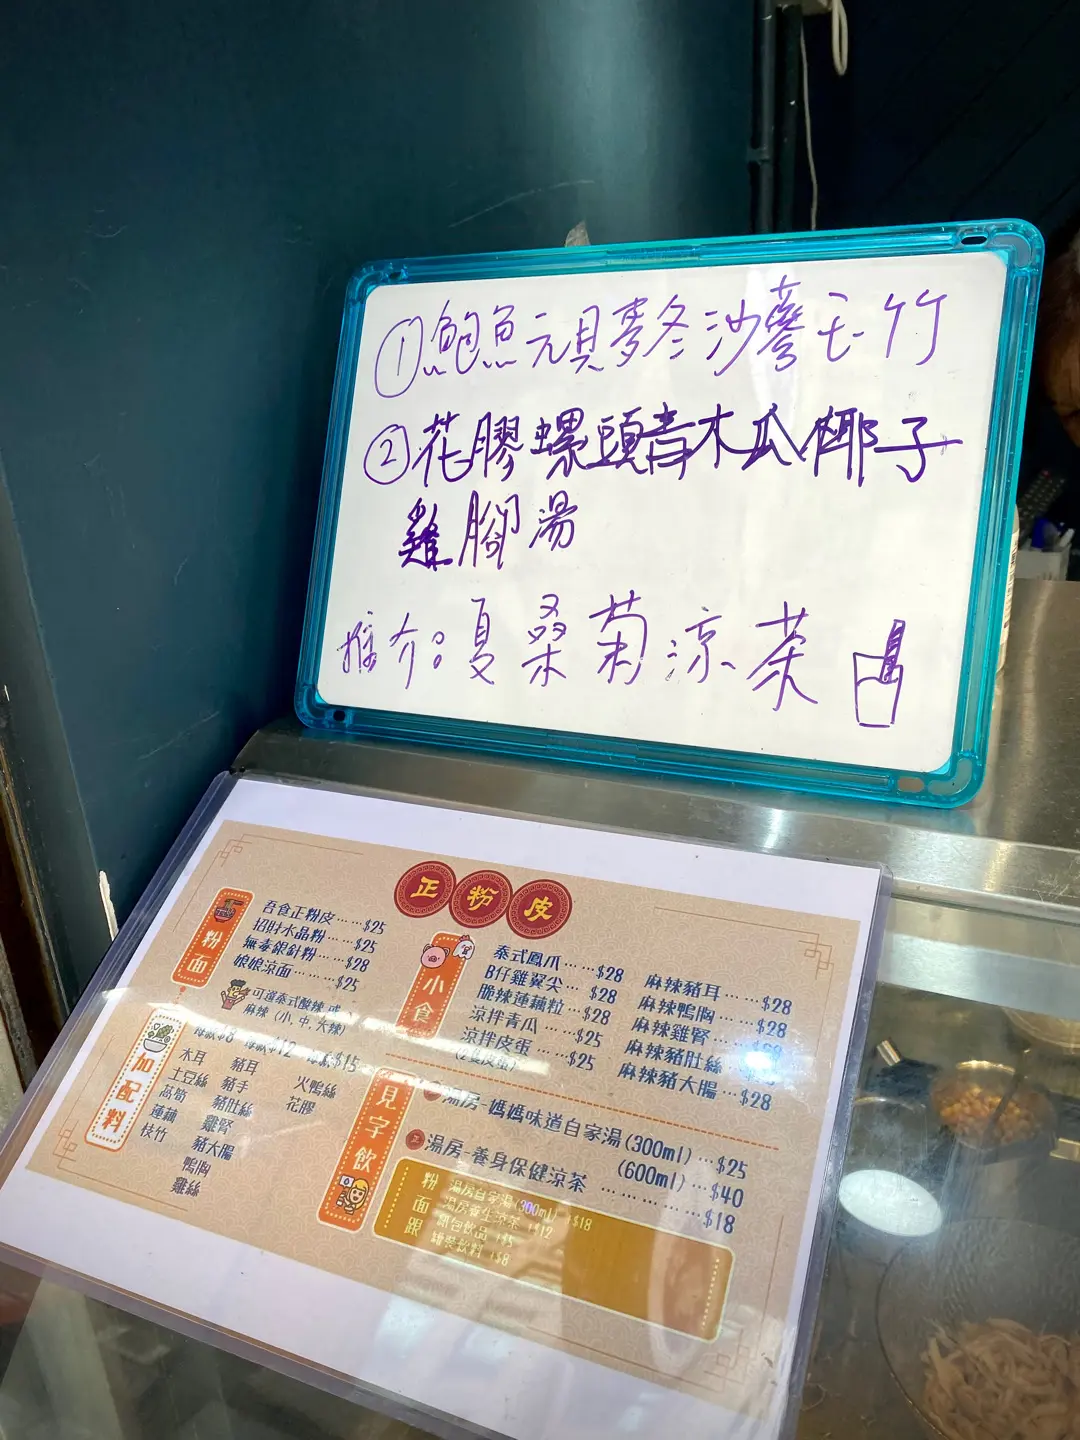 ①鮑魚元貝麥冬沙蔘玉竹
②花膠螺頭青木瓜椰子
雞腳湯
推介：夏桑菊涼茶
正粉皮
粉面
吾食正粉皮……$25
招財水晶粉…$25
無毒銀針粉…$28
娘娘涼面………$25
可選泰式酸辣 或
麻辣（小.中.大辣）
加配料
每款$8
木耳
土豆絲
萵筍
蓮藕
枝竹
每款$12
豬耳
豬手
豬肚絲
雞腎
豬大腸
鴨胸
雞絲
每款$15
火鴨絲
花膠
小食
泰式鳳爪……$28
B仔雞翼尖…$28
脆辣蓮藕粒…$28
涼拌青瓜…$25
涼拌皮蛋…$25
麻辣豬耳…$28
麻辣鴨胸…$28
麻辣雞腎
麻辣豬肚絲
麻辣豬大腸…$28
見字飲
湯房-媽媽味道自家湯(300ml)…$25
(600ml)…$40
正 湯房-養身保健涼茶………………$18
粉面跟
湯房自家湯(300ml) +$18
湯房養生涼茶 +$12
紙包飲品 +$5
罐裝飲料 +$8